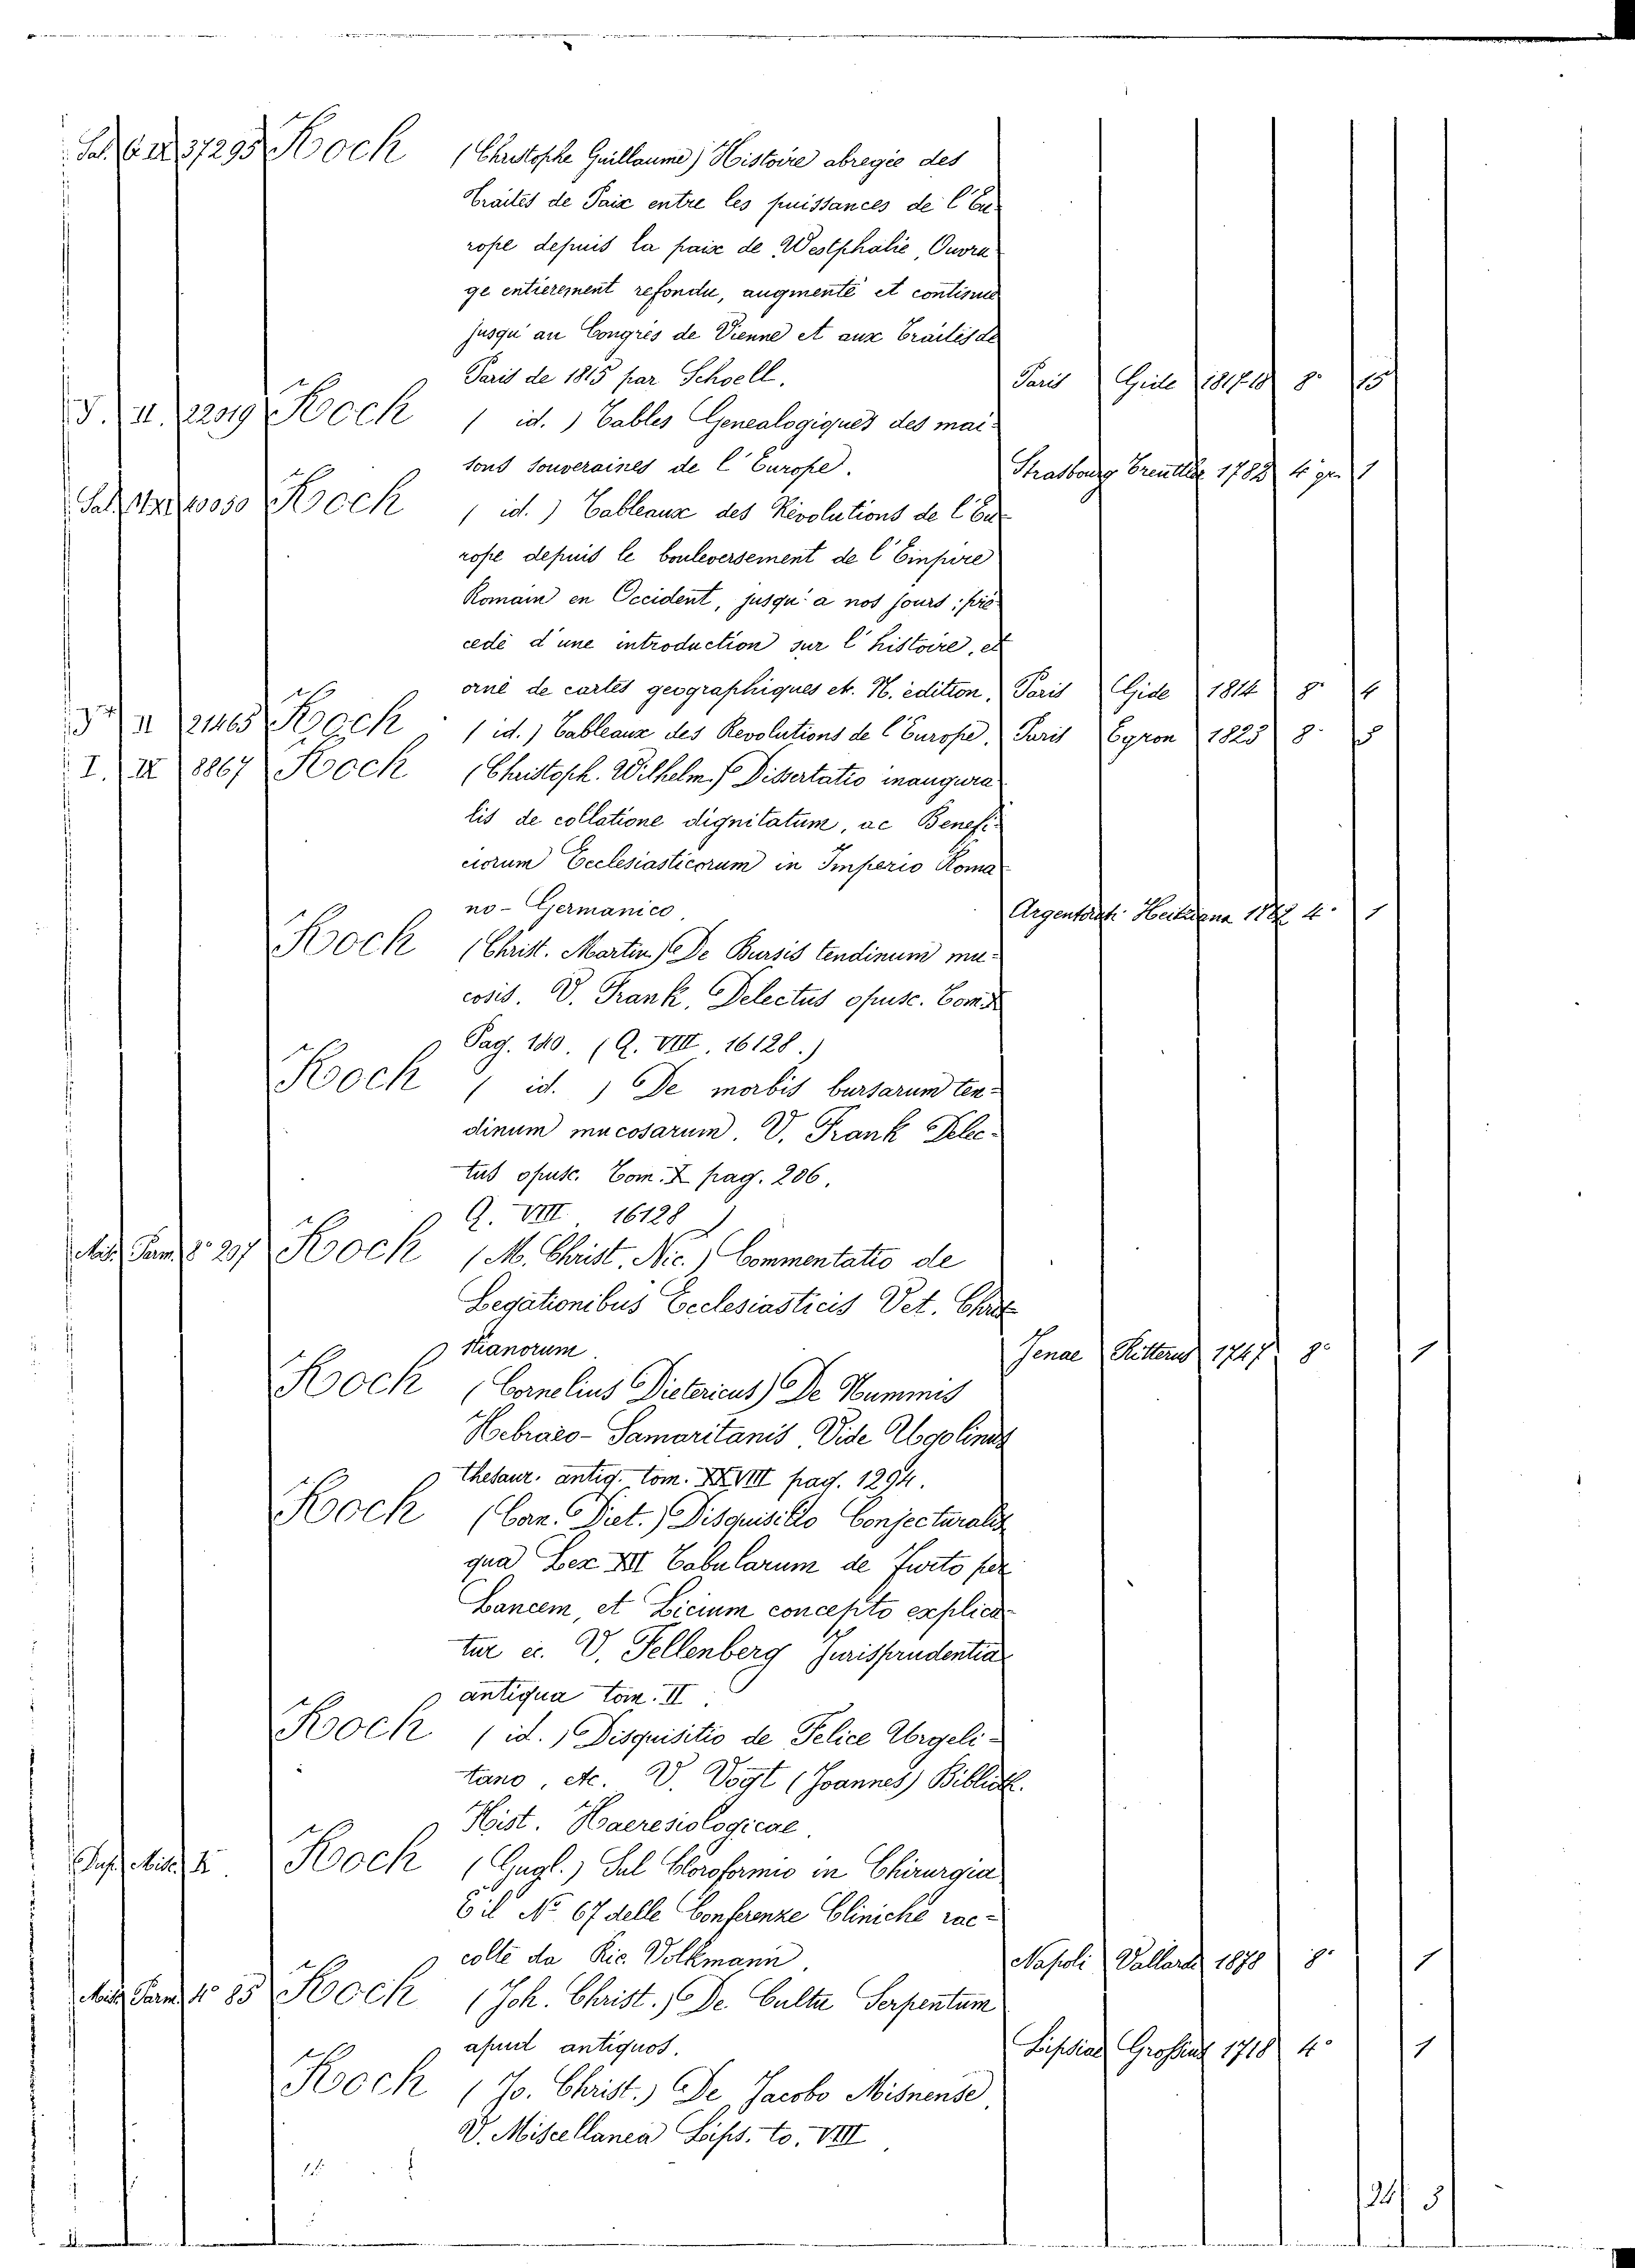 37295 Koch (Christophe Guillaume) Histoire abregée des
Traités de Paix entre les puissances de l'Eu-
rope depuis la paix de Westphalie, Ouvra
ge entierement refondu, augmenté et continue
jusqu'au Congrès de Vienne et aux Traités de
Paris de 1815 par Schoell. Paris Gide 1817-18 8° 15
J. II. 22019 Koch ( id. ) Tables Genealogiques des mai-
sons souveraines de l'Europe. Strasbourg Treuttel 1782 4° gr. 1
Koch ( id. ) Tableaux des Révolutions de l'Eu-
rope depuis le bouleversement de l'Empire
Romain en Occident, jusqu'a nos jours; pré
cedé d'une introduction sur l'histoire, et
orné de cartes geographiques et. N. edition. Paris Gide 1814 8° 4
II 21465 Koch ( id. ) Tableaux des Revolutions de l'Europe. Paris Eyron 1823 8° 3
I. IX 8867 Koch (Christoph. Wilhelm.) Dissertatio inaugura
lis de collatione dignitatum, ac Benefi-
ciorum Ecclesiasticorum in Imperio Roma
no-Germanico. Argentorati 4° 1
Koch (Christ. Martin) De Bursis tendinum mu-
cosis. V. Frank, Delectus opusc. Tom. X
Pag. 140. (Q. VIII. 16128.)
Koch ( id. ) De morbis bursarum ten-
dinum mucosarum. V. Frank Delec-
tus opusc. Tom. X pag. 206.
Q. VIII. 16128
Misc. Parm. 8° 297 Koch (M. Christ. Nic.) Commentatio de
Legationibus Ecclesiasticis Vet. Chris
tianorum. Jenae Ritterus 1747 8° 1
Koch (Cornelius Dietericus) De Nummis
Hebraeo-Samaritanis. Vide Ugolinus
thesaur. antiq. tom. XXVIII pag. 1294.
Koch (Con. Diet.) Disquisitio Conjecturalis
qua Lex XII Tabularum de Furto per
Lancem, et Licium concepto explica-
tur ec. V. Fellenberg Jurisprudentia
antiqua tom. II.
Koch ( id. ) Disquisitio de Felice Urgeli-
tano, etc. V. Vogt (Joannes) Biblioth.
Hist. Haeresiologicae.
Koch (Gugl.) Sul Cloroformio in Chirurgia
È il N° 67 delle Conferenze Cliniche rac-
colte da Ric. Volkmann. Napoli Vallardi 1878 8° 1
Misc. Parm. 4° 85 Koch (Joh. Christ.) De Cultu Serpentum
apud antiquos. Lipsiae Grossius 1718 4° 1
Koch (Jo. Christ.) De Jacobo Misnense.
V. Miscellanea Lips. to. VIII
24 3